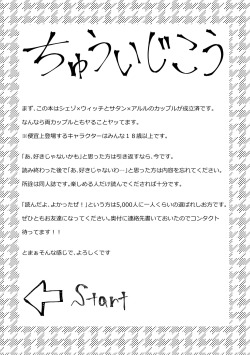 ちゅういじこう
まず、この本はシェゾ×ウィッチとサタン×アルルのカップルが成立済です。
なんなら両カップルともヤることヤってます。
※便宜上登場するキャラクターはみんな18歳以上です。
「あ、好きじゃないかも」と思った方は引き返すなら、今です。
読み終わった後で「あ、好きじゃないわ…」と思った方は内容を忘れてください。
所詮は同人誌です。楽しめる人だけ読んでくだされば十分です。
「読んだよ、よかったぜ！」という方は5,000人に一人くらいの選ばれしお方です。
ぜひともお友達になってください。奥付に連絡先書いておいたのでコンタクト
待ってます！！
とまぁそんな感じで、よろしくです
Start